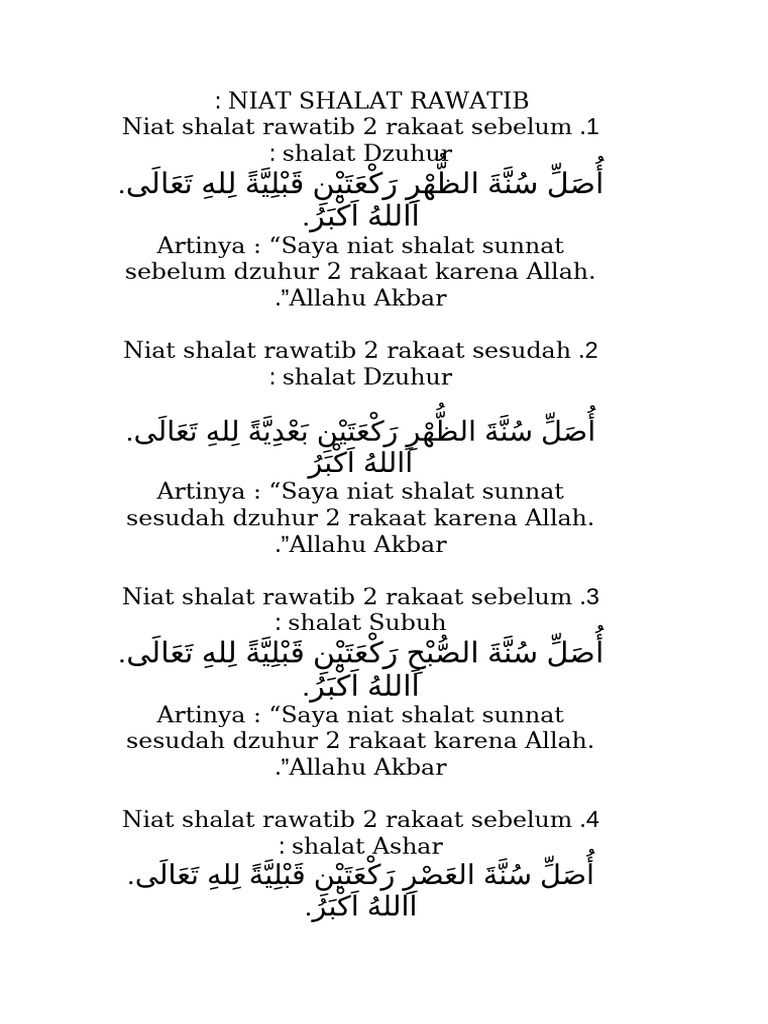 NIAT SHALAT RAWATIB :
1. Niat shalat rawatib 2 rakaat sebelum
shalat Dzuhur :
أُصَلِّ سُنَّةَ الظُّهْرِ رَكْعَتَيْنِ قَبْلِيَّةً لِلهِ تَعَالَى.
اَاللهُ اَكْبَرُ.
Artinya : “Saya niat shalat sunnat
sebelum dzuhur 2 rakaat karena Allah.
Allahu Akbar”.
2. Niat shalat rawatib 2 rakaat sesudah
shalat Dzuhur :
أُصَلِّ سُنَّةَ الظُّهْرِ رَكْعَتَيْنِ بَعْدِيَّةً لِلهِ تَعَالَى.
اَاللهُ اَكْبَرُ
Artinya : “Saya niat shalat sunnat
sesudah dzuhur 2 rakaat karena Allah.
Allahu Akbar”.
3. Niat shalat rawatib 2 rakaat sebelum
shalat Subuh :
أُصَلِّ سُنَّةَ الصُّبْحِ رَكْعَتَيْنِ قَبْلِيَّةً لِلهِ تَعَالَى.
اَاللهُ اَكْبَرُ.
Artinya : “Saya niat shalat sunnat
sesudah dzuhur 2 rakaat karena Allah.
Allahu Akbar”.
4. Niat shalat rawatib 2 rakaat sebelum
shalat Ashar :
أُصَلِّ سُنَّةَ العَصْرِ رَكْعَتَيْنِ قَبْلِيَّةً لِلهِ تَعَالَى.
اَاللهُ اَكْبَرُ.